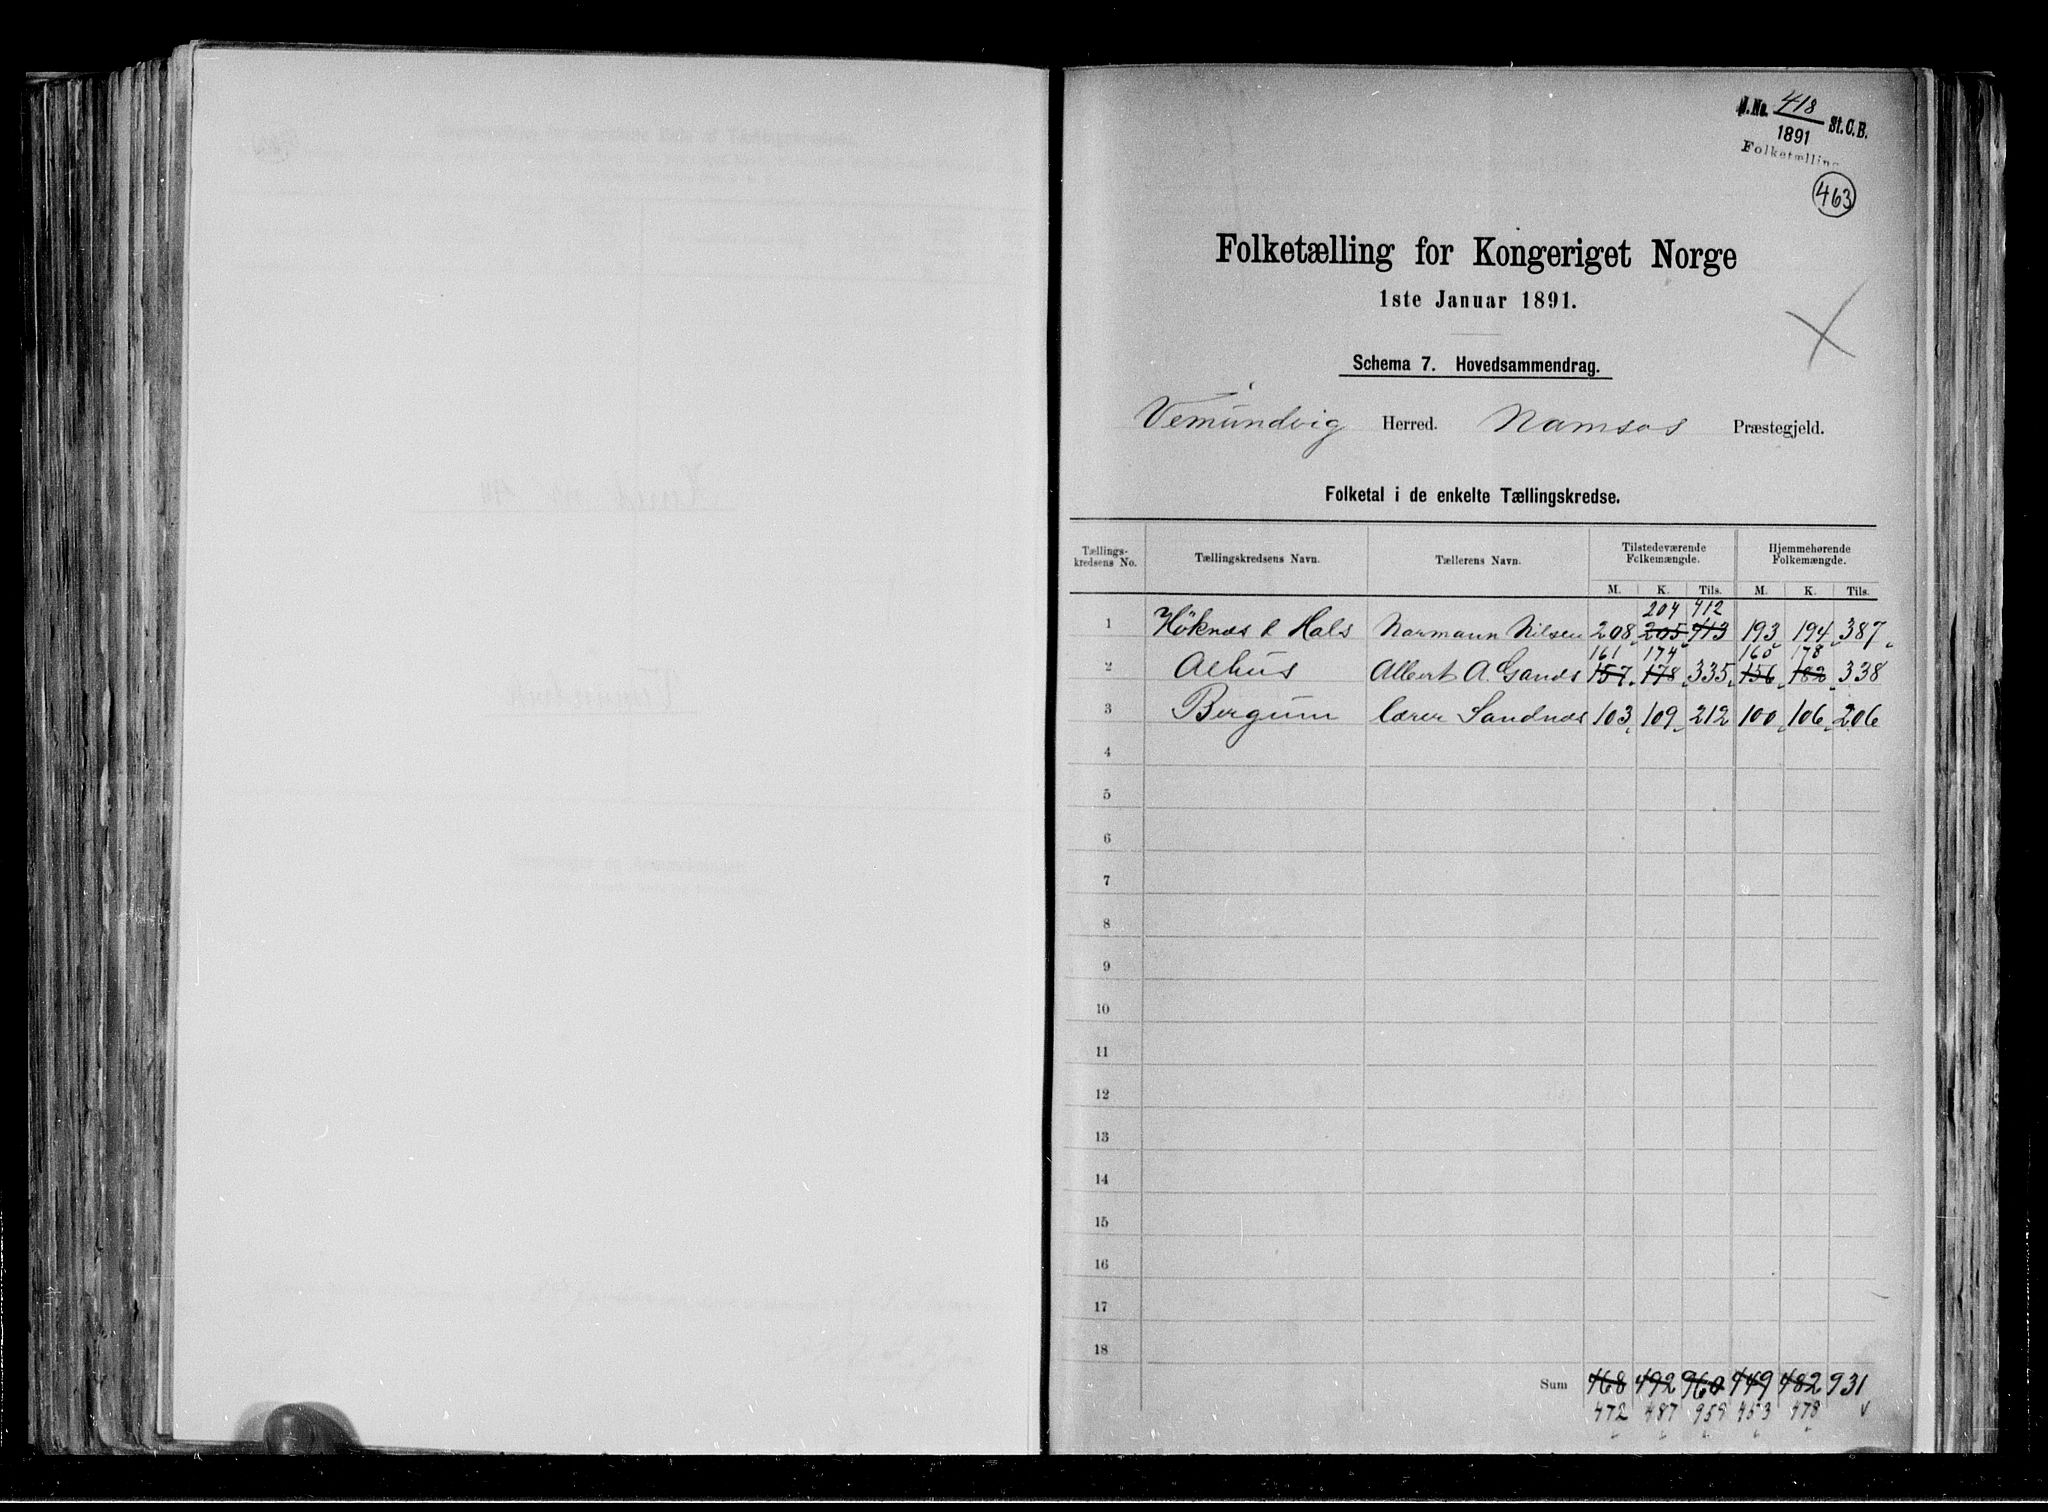 J.No. 418
1891 St.C.B.
Folketælling
463
Folketælling for Kongeriget Norge
1ste Januar 1891.
Schema 7. Hovedsammendrag.
Vemundvig Herred. Namsos Præstegjeld.
Folketal i de enkelte Tællingskredse.
Tællings-kredsens No. Tællingskredsens Navn. Tællerens Navn. Tilstedeværende Folkemængde. Hjemmehørende Folkemængde.
M. K. Tils. M. K. Tils.
204 412
1 Høknæs & Hals Normann Nilsen 208 205 413 193 194 387
161 174 160 178
2 Aelhus Albert A. Gands 157 178 335 156 182 338
3 Bergum Lærer Sandnæs 103 109 212 100 106 206
4
5
6
7
8
9
10
11
12
13
14
15
16
17
18
Sum 468 492 960 449 482 931
472 487 959 453 478